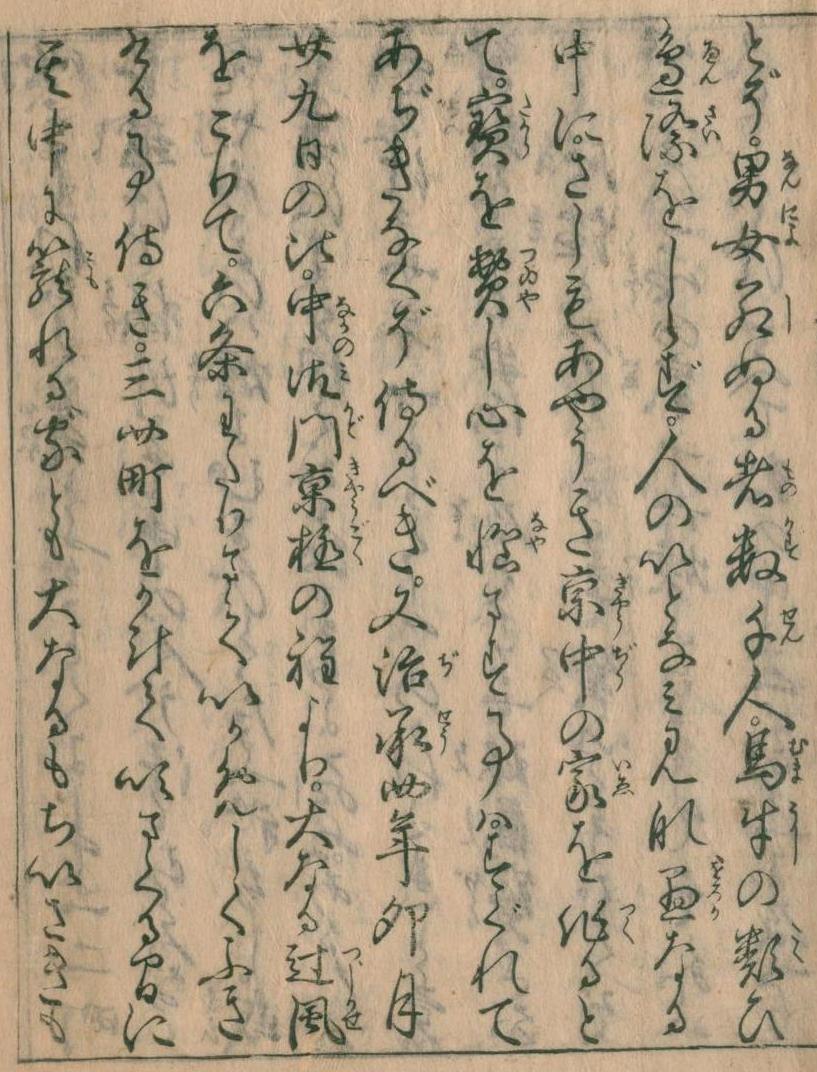 とぞ。男女死ぬる者数千人。馬牛の類ひ
邉際をしらず。人のいとなみ見れ愚なる
中に。さしもあやうき京中の家を作ると
て。寳を費し心を悩ます事ハ。すぐれて
あぢきなくぞ侍るべき。又治承四年卯月
廿九日の比。中御門京極の程より。大なる辻風
をこりて。六条わたりまでいかめしくふき
ける事侍き。三四町をかけてふきまくる間に
其中に籠れる家ども大なるもちいさきも